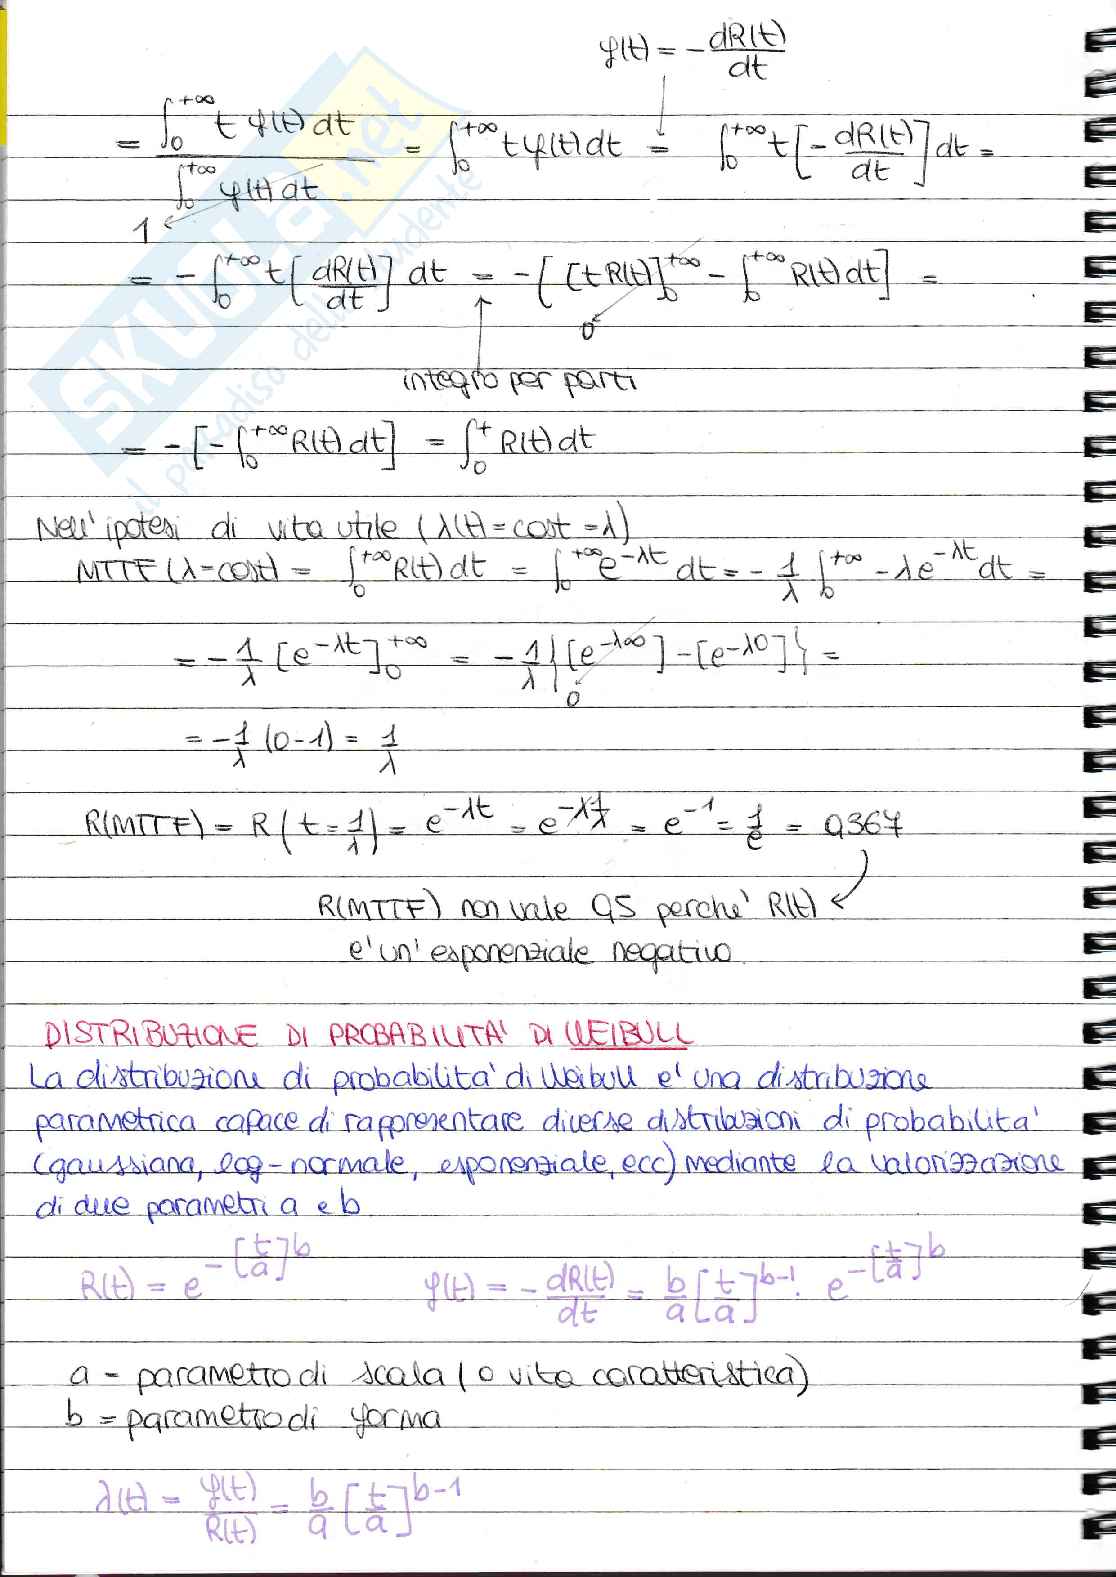 f(t) = - dR(t)/dt
= ∫₀^{+∞} t f(t) dt / ∫₀^{+∞} f(t) dt = ∫₀^{+∞} t f(t) dt = ∫₀^{+∞} t [- dR(t)/dt] dt =
1
= - ∫₀^{+∞} t [dR(t)/dt] dt = - [[t R(t)]₀^{+∞} - ∫₀^{+∞} R(t) dt] =
0
integro per parti
= - [- ∫₀^{+∞} R(t) dt] = ∫₀^{+} R(t) dt
Nell' ipotesi di vita utile (λ(t) = cost = λ)
MTTF (λ = cost) = ∫₀^{+∞} R(t) dt = ∫₀^{+∞} e^{-λt} dt = - 1/λ ∫₀^{+∞} -λ e^{-λt} dt =
= - 1/λ [e^{-λt}]₀^{+∞} = - 1/λ {[e^{-λ∞}] - [e^{-λ0}]} =
0
= - 1/λ (0 - 1) = 1/λ
R(MTTF) = R (t = 1/λ) = e^{-λt} = e^{-λ 1/λ} = e^{-1} = 1/e = 0,367
R(MTTF) non vale 0,5 perche' R(t)
e' un' esponenziale negativo
DISTRIBUZIONE DI PROBABILITA' DI WEIBULL
La distribuzione di probabilita' di Weibull e' una distribuzione
parametrica capace di rappresentare diverse distribuzioni di probabilita'
(gaussiana, log-normale, esponenziale, ecc) mediante la valorizzazione
di due parametri a e b
R(t) = e^{-[t/a]^b} f(t) = - dR(t)/dt = b/a [t/a]^{b-1} · e^{-[t/a]^b}
a = parametro di scala (o vita caratteristica)
b = parametro di forma
λ(t) = f(t)/R(t) = b/a [t/a]^{b-1}
SKUOLA.net
il paradiso dello studente